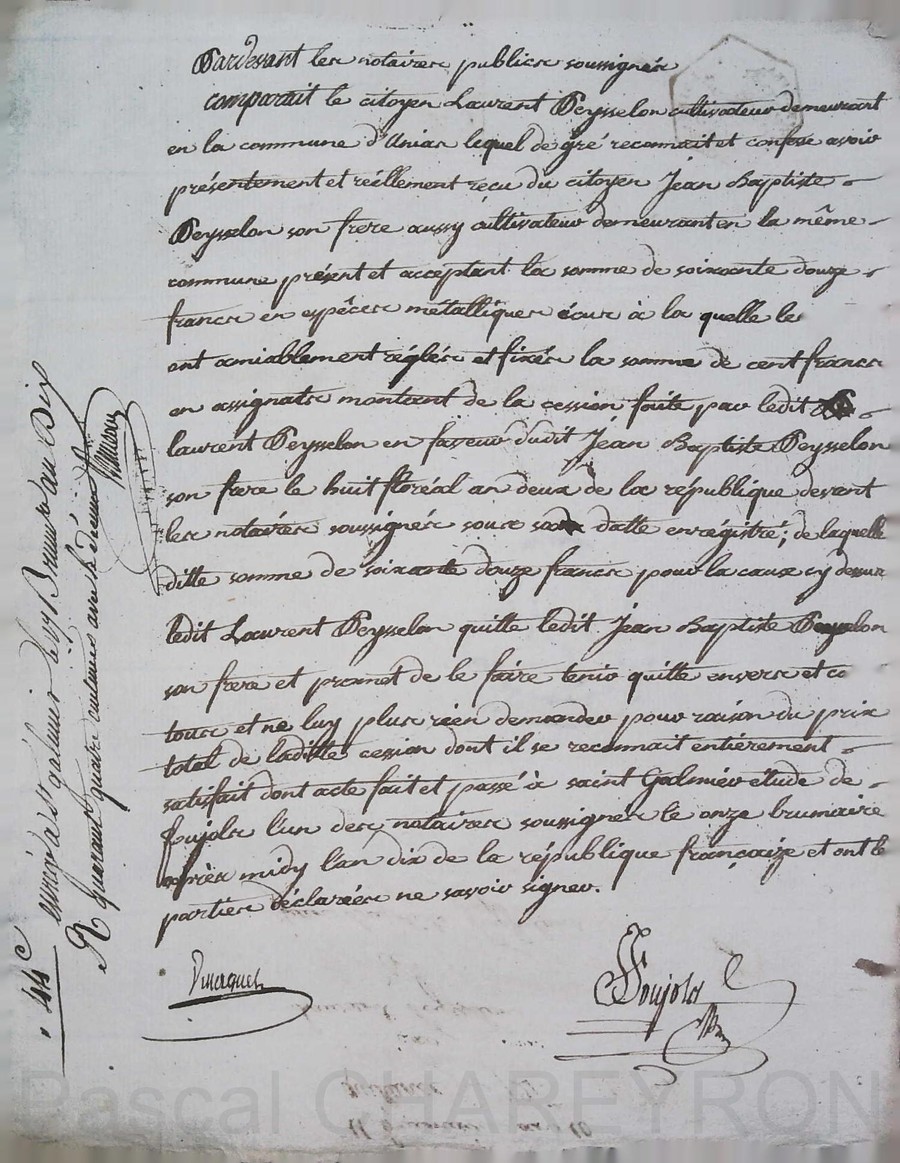 Pardevant les notaires publics soussignés
comparait le citoyen Laurent Peysselon cultivateur demeurant
en la commune d'Unias lequel de gré reconnait et confesse avoir
présentement et réellement reçu du citoyen Jean Baptiste
Peysselon son frere aussy cultivateur demeurant en la même
commune présent et acceptant la somme de soixante douze
francs en espêces métalliques écus à la quelle ils
ont amiablement réglés et fixés la somme de cent francs
en assignats montant de la cession faite par ledit
laurent Peysselon en faveur dudit Jean Baptiste Peysselon
son frere le huit floréal an deux de la république devant
les notaires soussignés sous sa datte enrégistré; de laquelle
ditte somme de soixante douze francs pour la cause cy dessus
ledit Laurent Peysselon quitte ledit Jean Baptiste Peysselon
son frere et promet de le faire tenir quitte envers et co
tous et ne luy plus rien demander pour raison du prix
total de laditte cession dont il se reconnait entiérement
satisfait dont acte fait et passé à saint Galmier étude de
Poujols l'un des notaires soussignés le onze brumaire
après midy l'an dix de la république françaize et ont les
parties déclarées ne savoir signer.
Poujols
44 c
enreg. à st galmier le 19 Brumre an Dix
R quarante quatre centimes avec le Décime
Pascal CHAREYRON